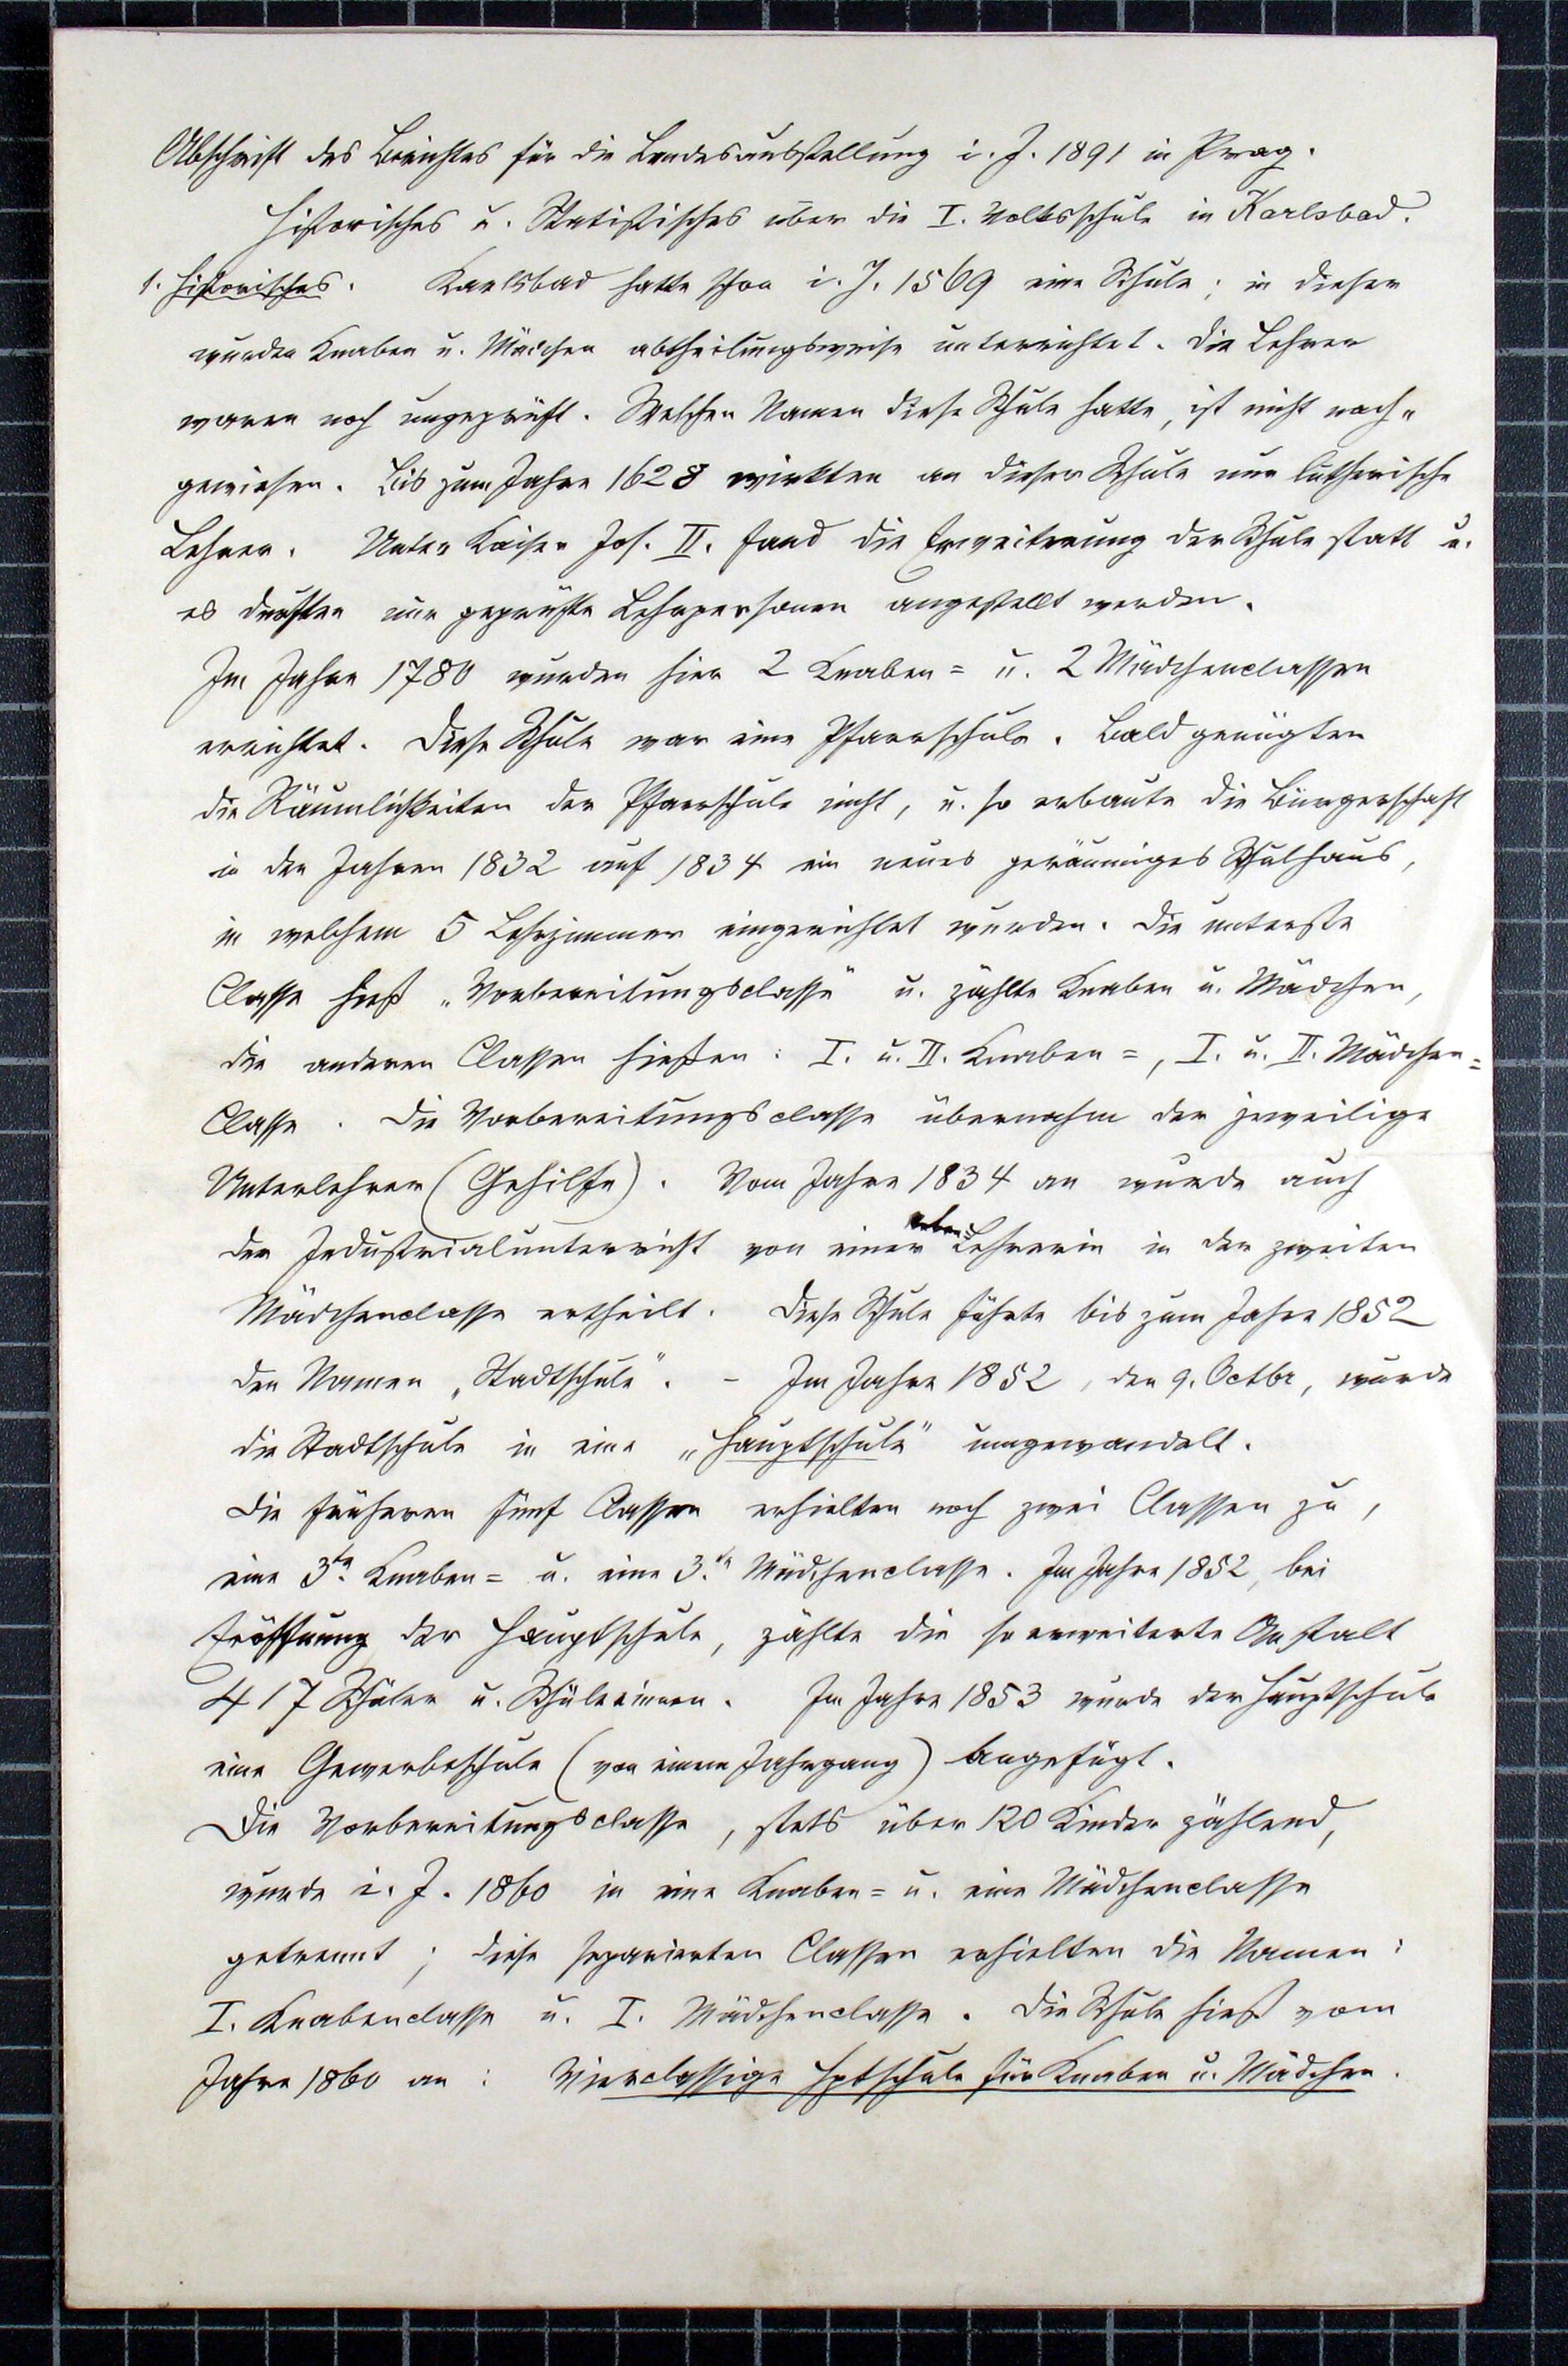 Abschrift des Berichtes für die Landesausstellung i. J. 1891 in Prag.
Historisches u. Statistisches über die I. Volksschule in Karlsbad.
1. Historisches. Karlsbad hatte schon i. J. 1569 eine Schule; in dieser
wurden Knaben u. Mädchen abtheilungsweise unterrichtet. Die Lehrer
waren noch ungeprüft. Welchen Namen diese Schule hatte, ist nicht nach-
gewiesen. Bis zum Jahre 1628 wirkten an dieser Schule nur lutherische
Lehrer. Unter Kaiser Jos. II. fand die Erweiterung der Schule statt u.
es durften nur geprüfte Lehrpersonen angestellt werden.
Im Jahre 1780 wurden hier 2 Knaben= u. 2 Mädchenclassen
errichtet. Diese Schule war eine Pfarrschule. Bald genügten
die Räumlichkeiten der Pfarrschule nicht, u. so erbaute die Bürgerschaft
in den Jahren 1832 auf 1834 ein neues geräumiges Schulhaus,
in welchem 5 Lehrzimmer eingerichtet wurden. Die unterste
Classe hieß „Vorbereitungsclasse" u. zählte Knaben u. Mädchen,
die anderen Classen hießen: I. u. II. Knaben=, I. u. II. Mädchen=
Classe. Die Vorbereitungsclasse übernahm der jeweilige
Unterlehrer (Gehilfe). Vom Jahre 1834 an wurde auch
der Industrialunterricht von einer Lehrerin in der zweiten
Mädchenclasse ertheilt. Diese Schule führte bis zum Jahre 1852
den Namen „Stadtschule". - Im Jahre 1852, den 9. Octbr, wurde
die Stadtschule in eine „Hauptschule" umgewandelt.
Die früheren fünf Classen erhielten noch zwei Classen zu,
eine 3te. Knaben= u. eine 3.te Mädchenclasse. Im Jahre 1852, bei
Eröffnung der Hauptschule, zählte die so erweiterte Anstalt
417 Schüler u. Schülerinnen. Im Jahre 1853 wurde der Hauptschule
eine Gewerbeschule (von einem Jahrgang) angefügt.
Die Vorbereitungsclasse, stets über 120 Kinder zählend,
wurde i. J. 1860 in eine Knaben= u. eine Mädchenclasse
getrennt; diese separierten Classen erhielten die Namen:
I. Knabenclasse u. I. Mädchenclasse. Die Schule hieß vom
Jahre 1860 an: Vierclassige Hptschule für Knaben u. Mädchen.